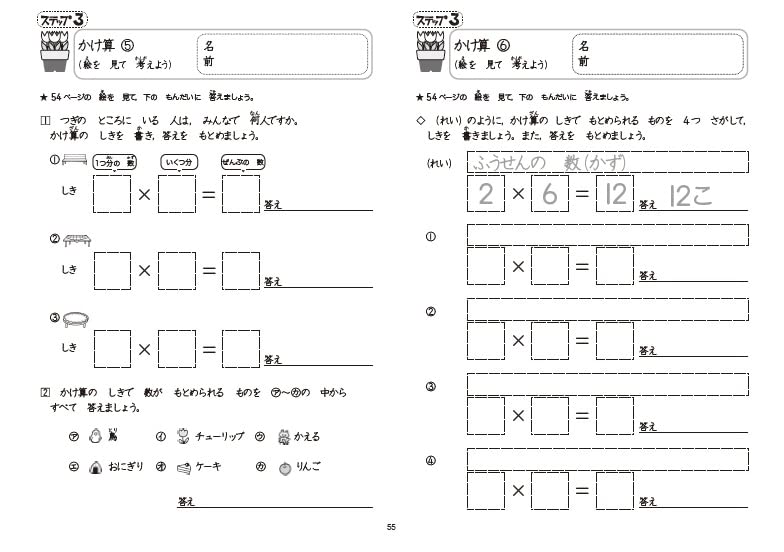 ステップ3
かけ算 ⑤
(絵を 見て 考えよう)
名前
★ 54ページの 絵を 見て、下の もんだいに 答えましょう。
1 つぎの ところに いる 人は、みんなで 何人ですか。
かけ算の しきを 書き、答えを もとめましょう。
① 1つ分の 数 いくつ分 ぜんぶの 数
しき × = 答え
②
しき × = 答え
③
しき × = 答え
2 かけ算の しきで 数が もとめられる ものを ㋐〜㋕の 中から
すべて 答えましょう。
㋐ 鳥 ㋑ チューリップ ㋒ かえる
㋓ おにぎり ㋔ ケーキ ㋕ りんご
答え
ステップ3
かけ算 ⑥
(絵を 見て 考えよう)
名前
★ 54ページの 絵を 見て、下の もんだいに 答えましょう。
◇ (れい)のように、かけ算の しきで もとめられる ものを 4つ さがして、
しきを 書きましょう。また、答えを もとめましょう。
(れい) ふうせんの 数(かず)
2 × 6 = 12 答え 12こ
①
× = 答え
②
× = 答え
③
× = 答え
④
× = 答え
55